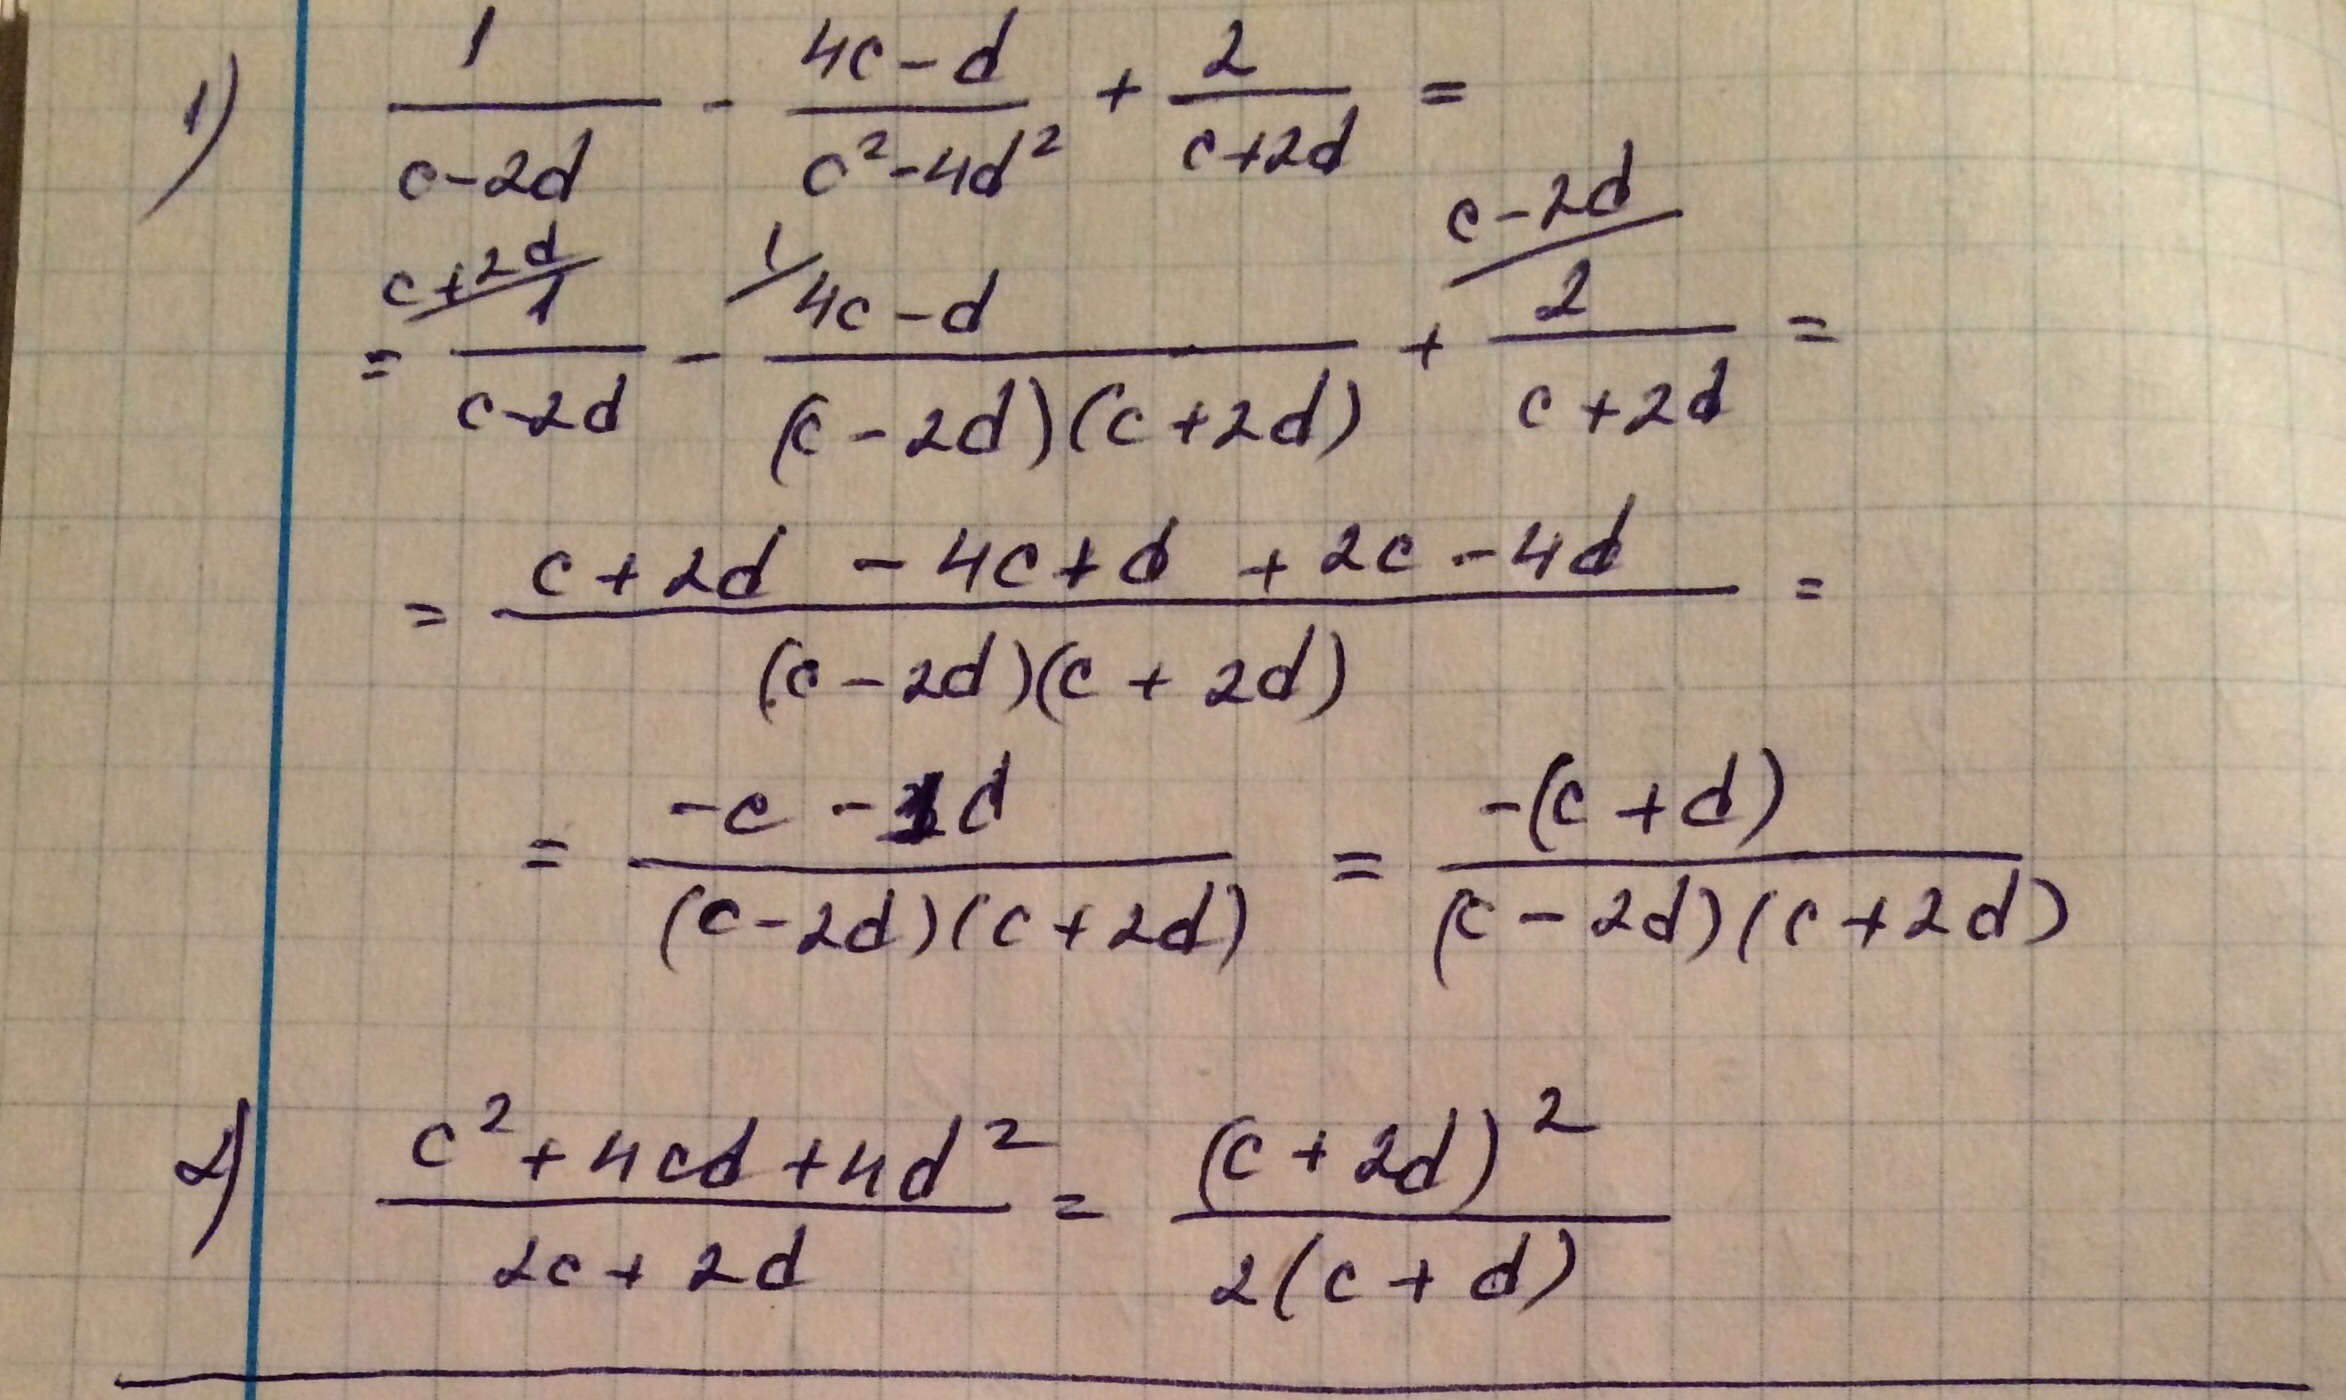 1) 1/(c-2d) - (4c-d)/(c²-4d²) + 2/(c+2d) =
= (c+2d/ 1)/(c-2d) - (1/ 4c-d)/((c-2d)(c+2d)) + (c-2d/ 2)/(c+2d) =
= (c+2d - 4c+d + 2c-4d)/((c-2d)(c+2d)) =
= (-c - 1d)/((c-2d)(c+2d)) = (-(c+d))/((c-2d)(c+2d))
2) (c²+4cd+4d²)/(2c+2d) = (c+2d)²/(2(c+d))